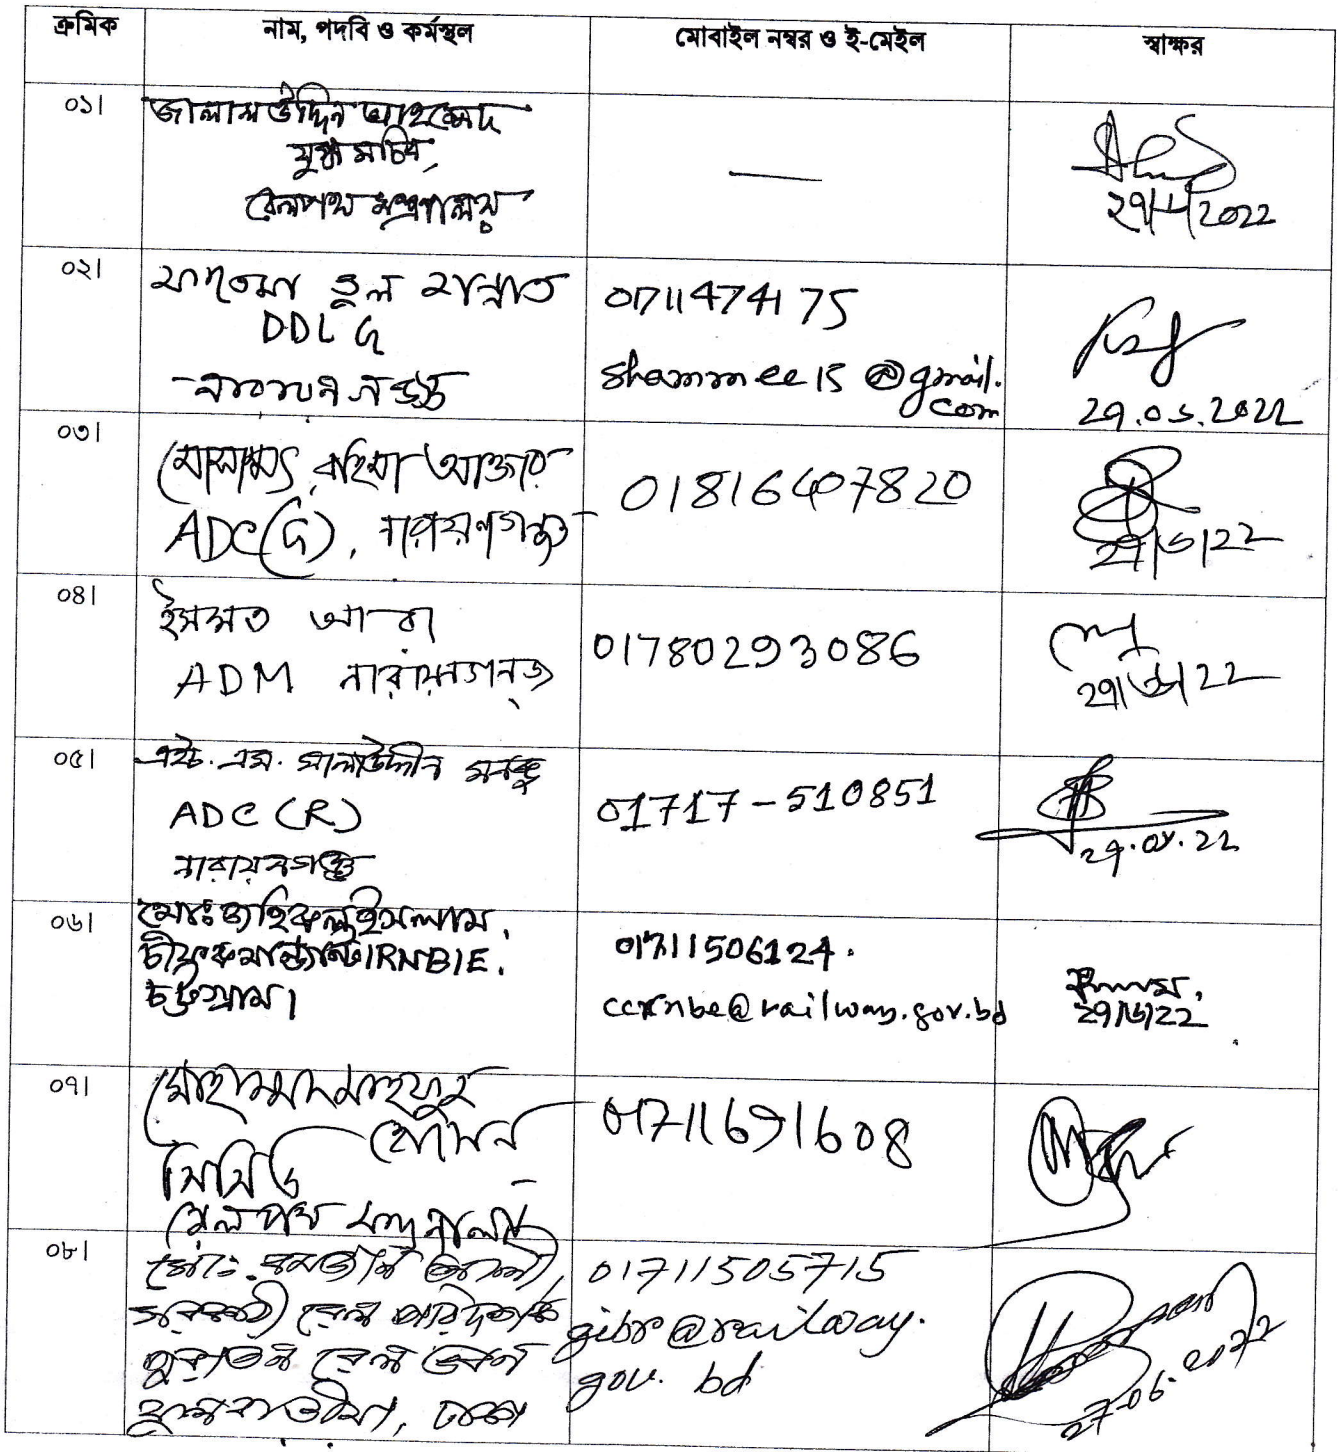 ক্রমিক নাম, পদবি ও কর্মস্থল মোবাইল নম্বর ও ই-মেইল স্বাক্ষর
০১। জালাল উদ্দিন আহম্মেদ
যুগ্ম সচিব,
রেলপথ মন্ত্রণালয়
—
২৭/ /2022
০২। ফাতেমা তুল জান্নাত
DDLG
নারায়নগঞ্জ
01711474175
shammee15@gmail.
com
২৭.০৬.২০২২
০৩। মোসাম্মৎ রহিমা আক্তার
ADC(G), নারায়ণগঞ্জ
01816407820
২৭/৬/২২
০৪। ইসমত আরা
ADM নারায়নগন্জ
01780293086
২৭/৬/২২
০৫। এইচ. এম. সালাউদ্দীন মনজু
ADC (R)
নারায়নগঞ্জ
01717-510851
২৭.০৬.২২
০৬। মোঃ জহিরুল ইসলাম,
চীফ কমান্ড্যান্ট/RNB/E.
চট্টগ্রাম।
01711506124.
ccrnbe@railway.gov.bd
২৭/৬/২২
০৭। মোহাম্মদ মাহফুজ
হোসেন
রেলপথ মন্ত্রণালয়
01711691608
০৮। মোঃ রমজান আলী,
সরকারী রেল পরিদর্শক
পুরাতন রেল ভবন
ফুলবাড়ীয়া, ঢাকা
01711505715
gibr@railway.
gov.bd
27-06-2022